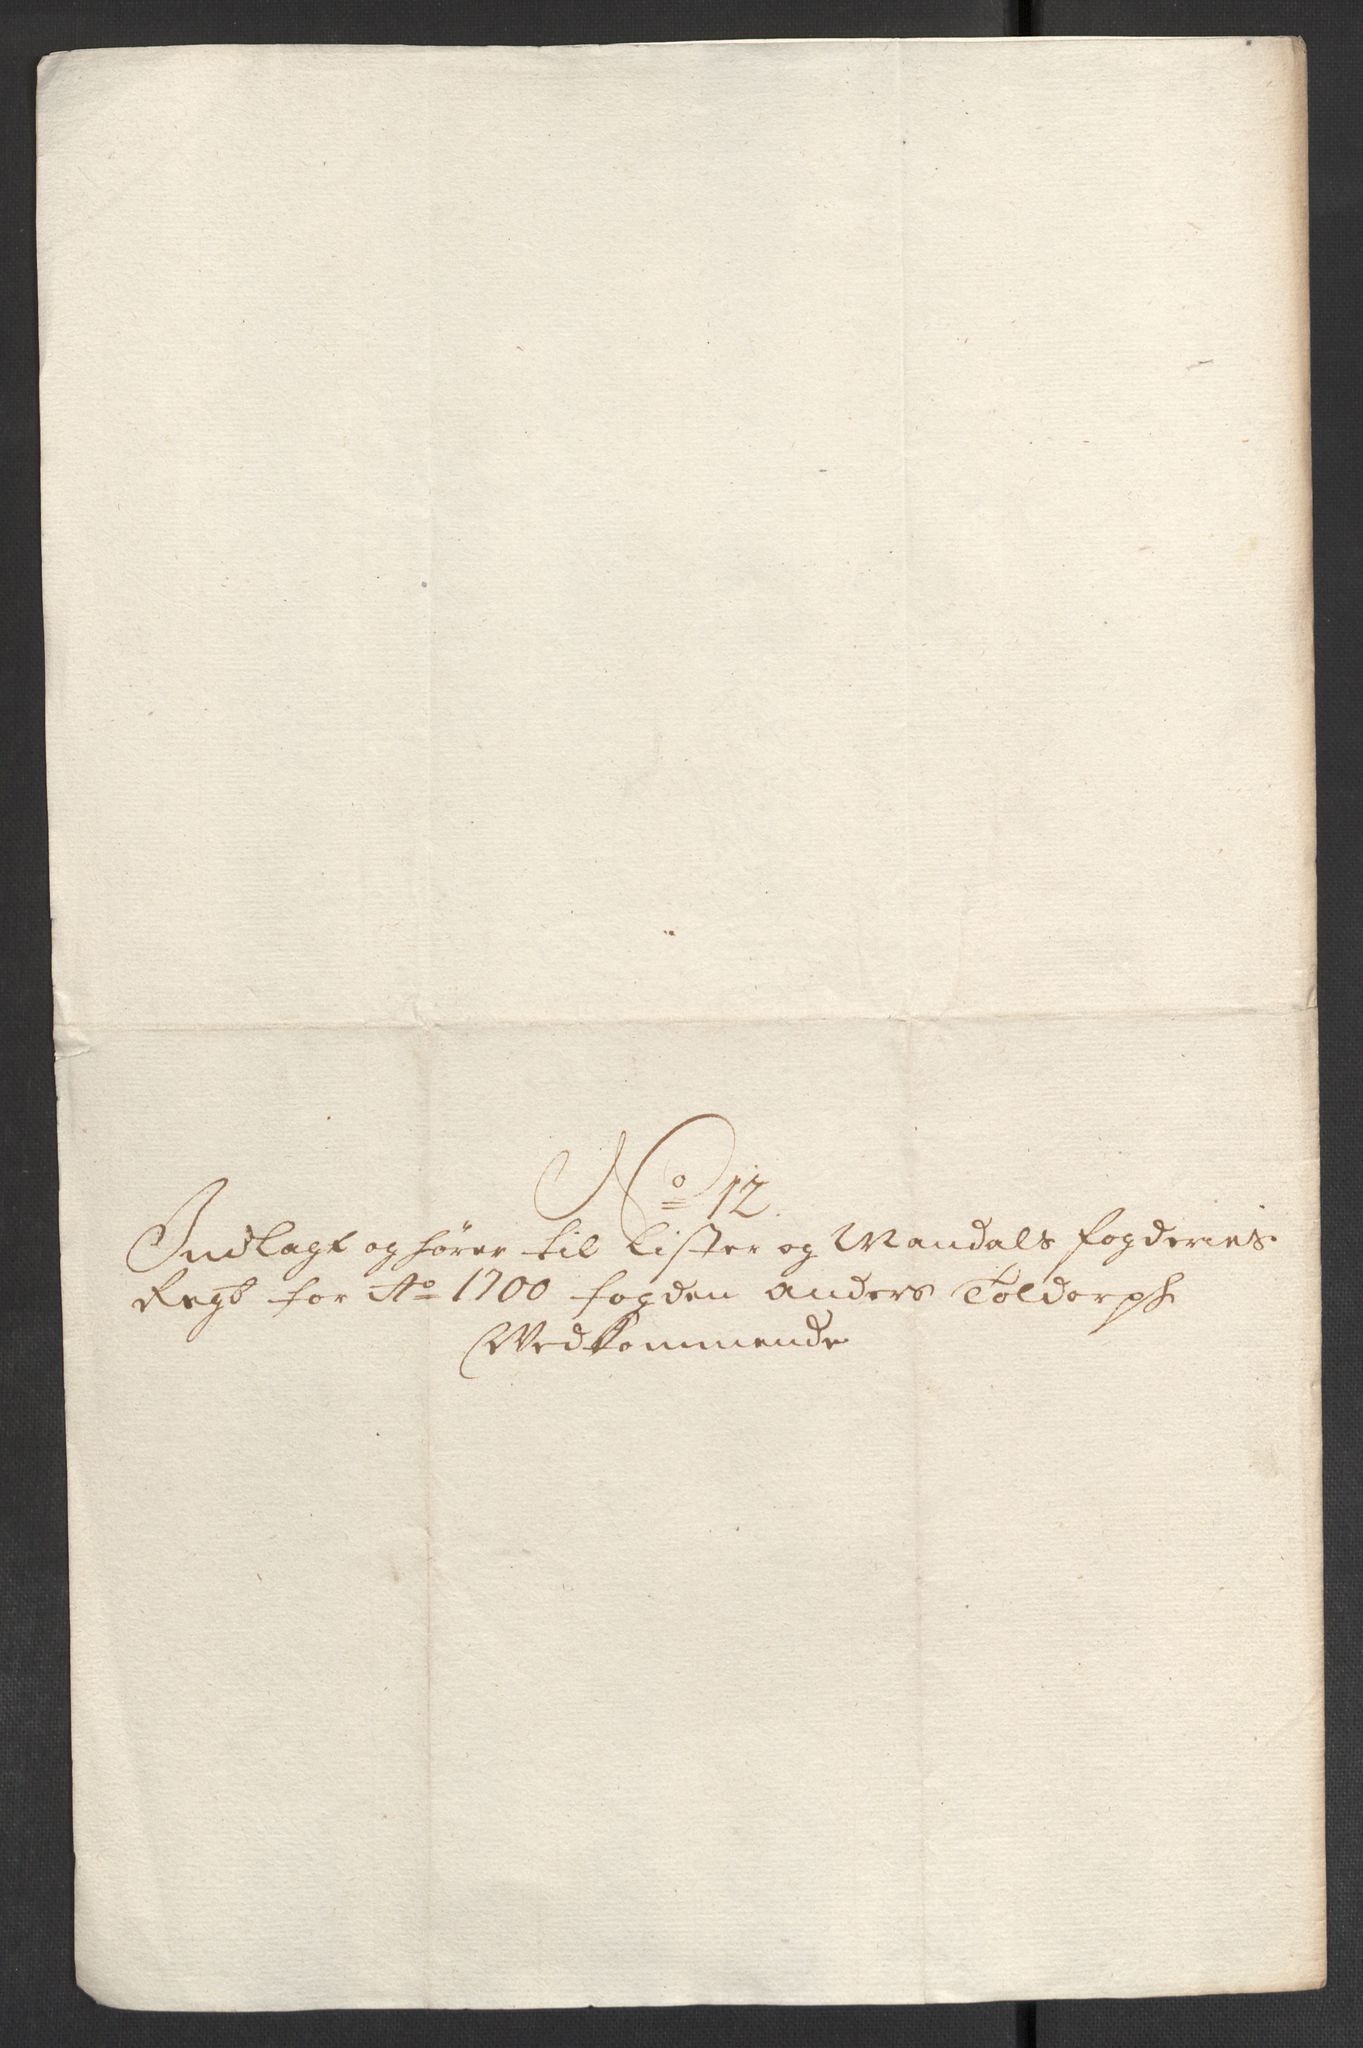 No 12.
Indlagt og hører til Lister og Mandals fogderies
Regb for Ao 1700 fogden Anders Toldorph
Vedkommende